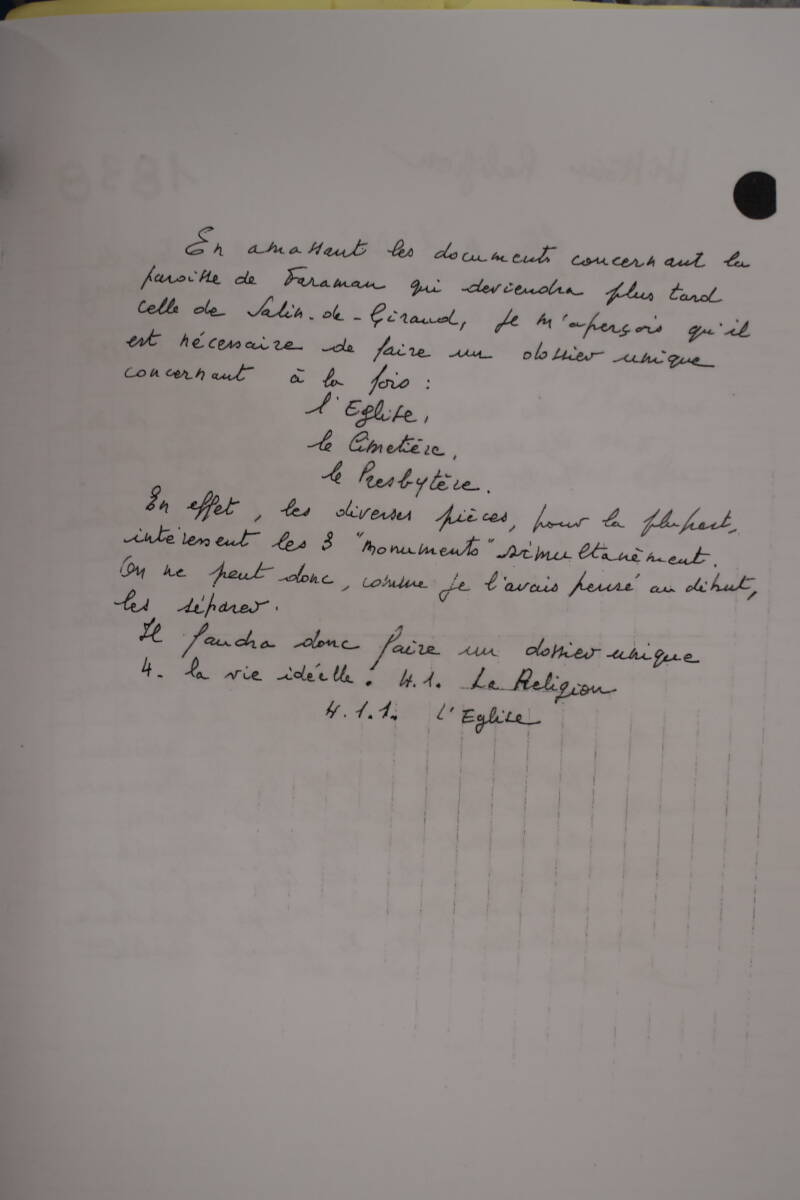 En amassant les documents concernant la
paroisse de Faraman qui deviendra plus tard
celle de Salin-de-Giraud, je m'aperçois qu'il
est nécessaire de faire un dossier unique
concernant à la fois :
l'Eglise,
le Cimetière,
le Presbytère.
En effet, les diverses pièces, pour la plupart,
intéressent les 3 "monuments" simultanément.
On ne peut donc, comme je l'avais pensé au début,
les séparer.
Il faudra donc faire un dossier unique
4. la vie idéelle. 4.1. La Religion
4.1.1. l'Eglise